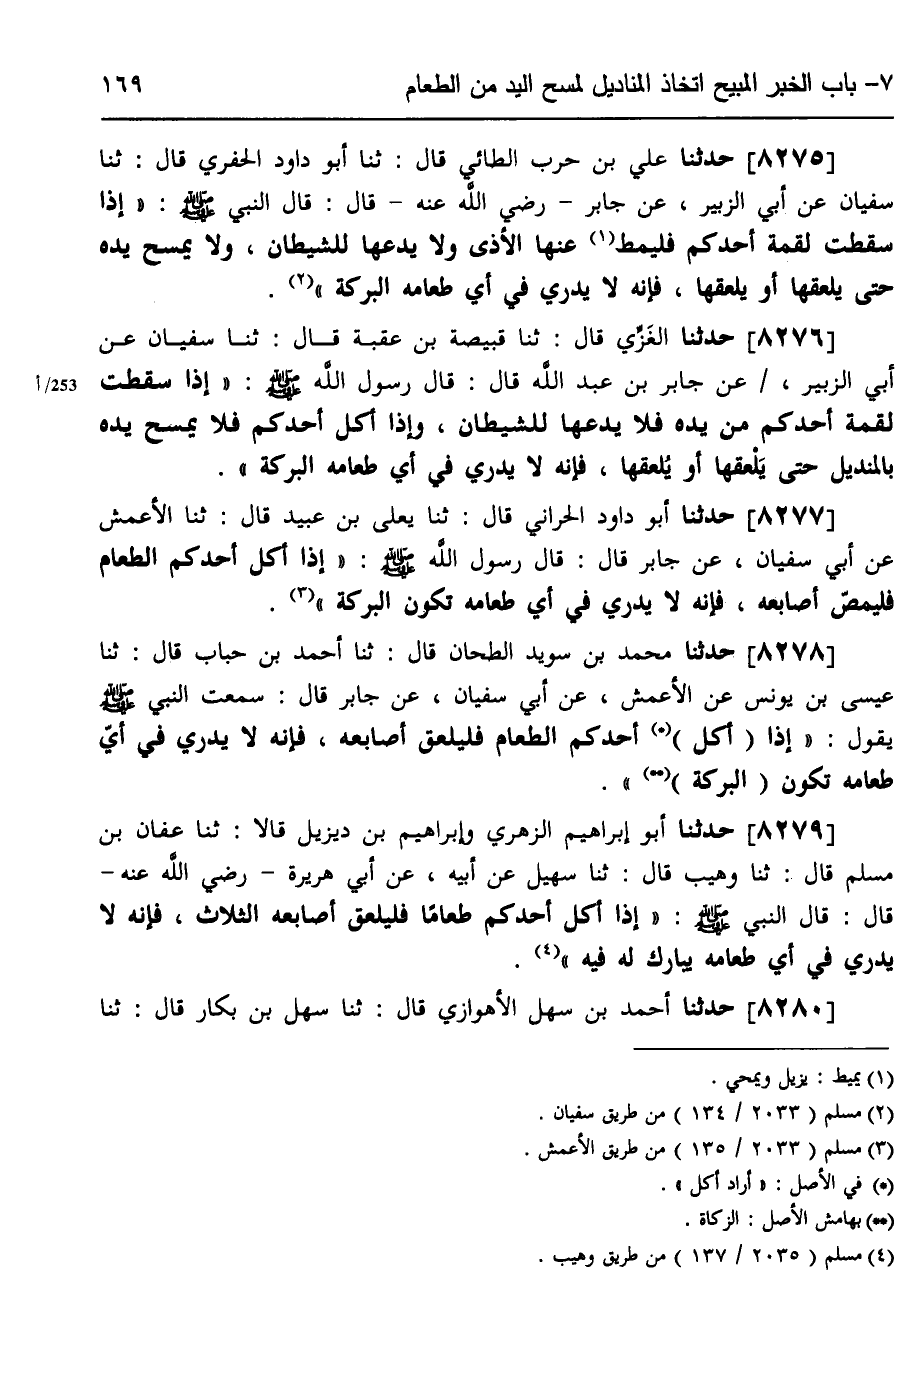 ٧- باب الخبر المبيح اتخاذ المناديل لمسح اليد من الطعام ١٦٩
[٨٢٧٥] حدثنا علي بن حرب الطائي قال : ثنا أبو داود الحفري قال : ثنا
سفيان عن أبي الزبير ، عن جابر - رضي اللَّه عنه - قال : قال النبي ﷺ : « إذا
سقطت لقمة أحدكم فليمط(١) عنها الأذى ولا يدعها للشيطان ، ولا يمسح يده
حتى يلعقها أو يلعقها ، فإنه لا يدري في أي طعامه البركة »(٢) .
[٨٢٧٦] حدثنا الغَزِّي قال : ثنا قبيصة بن عقبة قال : ثنا سفيان عن
أبي الزبير ، / عن جابر بن عبد اللَّه قال : قال رسول اللَّه ﷺ : « إذا سقطت 253/أ
لقمة أحدكم من يده فلا يدعها للشيطان ، وإذا أكل أحدكم فلا يمسح يده
بالمنديل حتى يَلْعقها أو يُلعقها ، فإنه لا يدري في أي طعامه البركة » .
[٨٢٧٧] حدثنا أبو داود الحراني قال : ثنا يعلى بن عبيد قال : ثنا الأعمش
عن أبي سفيان ، عن جابر قال : قال رسول اللَّه ﷺ : « إذا أكل أحدكم الطعام
فليمصّ أصابعه ، فإنه لا يدري في أي طعامه تكون البركة »(٣) .
[٨٢٧٨] حدثنا محمد بن سويد الطحان قال : ثنا أحمد بن حباب قال : ثنا
عيسى بن يونس عن الأعمش ، عن أبي سفيان ، عن جابر قال : سمعت النبي ﷺ
يقول : « إذا ( أكل )(*) أحدكم الطعام فليلعق أصابعه ، فإنه لا يدري في أيّ
طعامه تكون ( البركة )(**) » .
[٨٢٧٩] حدثنا أبو إبراهيم الزهري وإبراهيم بن ديزيل قالا : ثنا عفان بن
مسلم قال : ثنا وهيب قال : ثنا سهيل عن أبيه ، عن أبي هريرة - رضي اللَّه عنه -
قال : قال النبي ﷺ : « إذا أكل أحدكم طعامًا فليلعق أصابعه الثلاث ، فإنه لا
يدري في أي طعامه يبارك له فيه »(٤) .
[٨٢٨٠] حدثنا أحمد بن سهل الأهوازي قال : ثنا سهل بن بكار قال : ثنا
(١) يميط : يزيل ويمحي .
(٢) مسلم ( ٢٠٣٣ / ١٣٤ ) من طريق سفيان .
(٣) مسلم ( ٢٠٣٣ / ١٣٥ ) من طريق الأعمش .
(*) في الأصل : « أراد أكل » .
(**) بهامش الأصل : الزكاة .
(٤) مسلم ( ٢٠٣٥ / ١٣٧ ) من طريق وهيب .